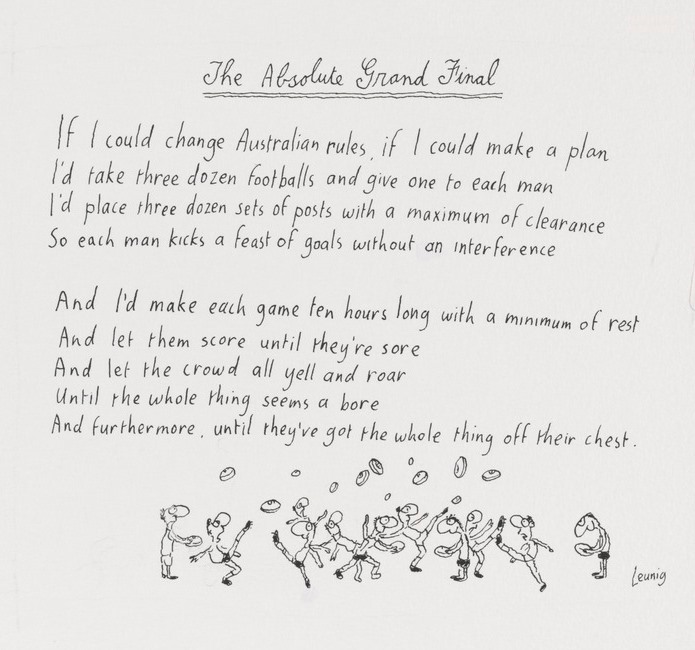 The Absolute Grand Final
If I could change Australian rules, if I could make a plan
I'd take three dozen footballs and give one to each man
I'd place three dozen sets of posts with a maximum of clearance
So each man kicks a feast of goals without an interference
And I'd make each game ten hours long with a minimum of rest
And let them score until they're sore
And let the crowd all yell and roar
Until the whole thing seems a bore
And furthermore, until they've got the whole thing off their chest.
Leunig